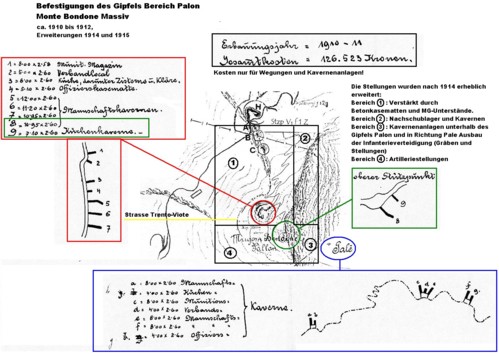 Befestigungen des Gipfels Bereich Palon
Monte Bondone Massiv
ca. 1910 bis 1912,
Erweiterungen 1914 und 1915
Erbauungsjahr = 1910 - 11
Gesamtkosten = 126.523 Kronen.
Kosten nur für Wegungen und Kavernenanlagen!
1 = 8·00 × 2·58 Munit. Magazin
2 = × 2·60 Verbandlocal
3 = 8·00 × 2·60 Küche, darunter Zisterne u. Kläre.
4 = 5·10 × 2·60 Offizierskasematte.
5 = 12·00 × 2·60
6 = 11·20 × 2·60 Mannschaftskavernen.
7 = 10·95 × 2·60
8 = 10·95 × 2·60
9 = 8·10 × 2·60 Küchenkaverne.
Die Stellungen wurden nach 1914 erheblich
erweitert:
Bereich 1 : Verstärkt durch
Betonkasematten und MG-Unterstände.
Bereich 2 : Nachschublager und Kavernen
Bereich 3 : Kavernenanlagen unterhalb des
Gipfels Palon und in Richtung Pale Ausbau
der Infanterieverteidigung (Gräben und
Stellungen)
Bereich 4 : Artilleriestellungen
H
1
2
oberer Stützpunkt
9
8
1
2
3
4
5
6
7
Strasse Trento-Viote
4
3
Palon
Palè
a = 8·00 × 2·60 Mannschafts-
g = 4·00 × 2·60 Küchen-
c = 8·00 × 2·60 Munitions-
d = 4·00 × 2·60 Verbands-
e = 8·00 × 2·60 Mannschafts-
f = 8·00 × 2·60 " "
h = 4·00 × 2·60 Offiziers-
Kaverne.